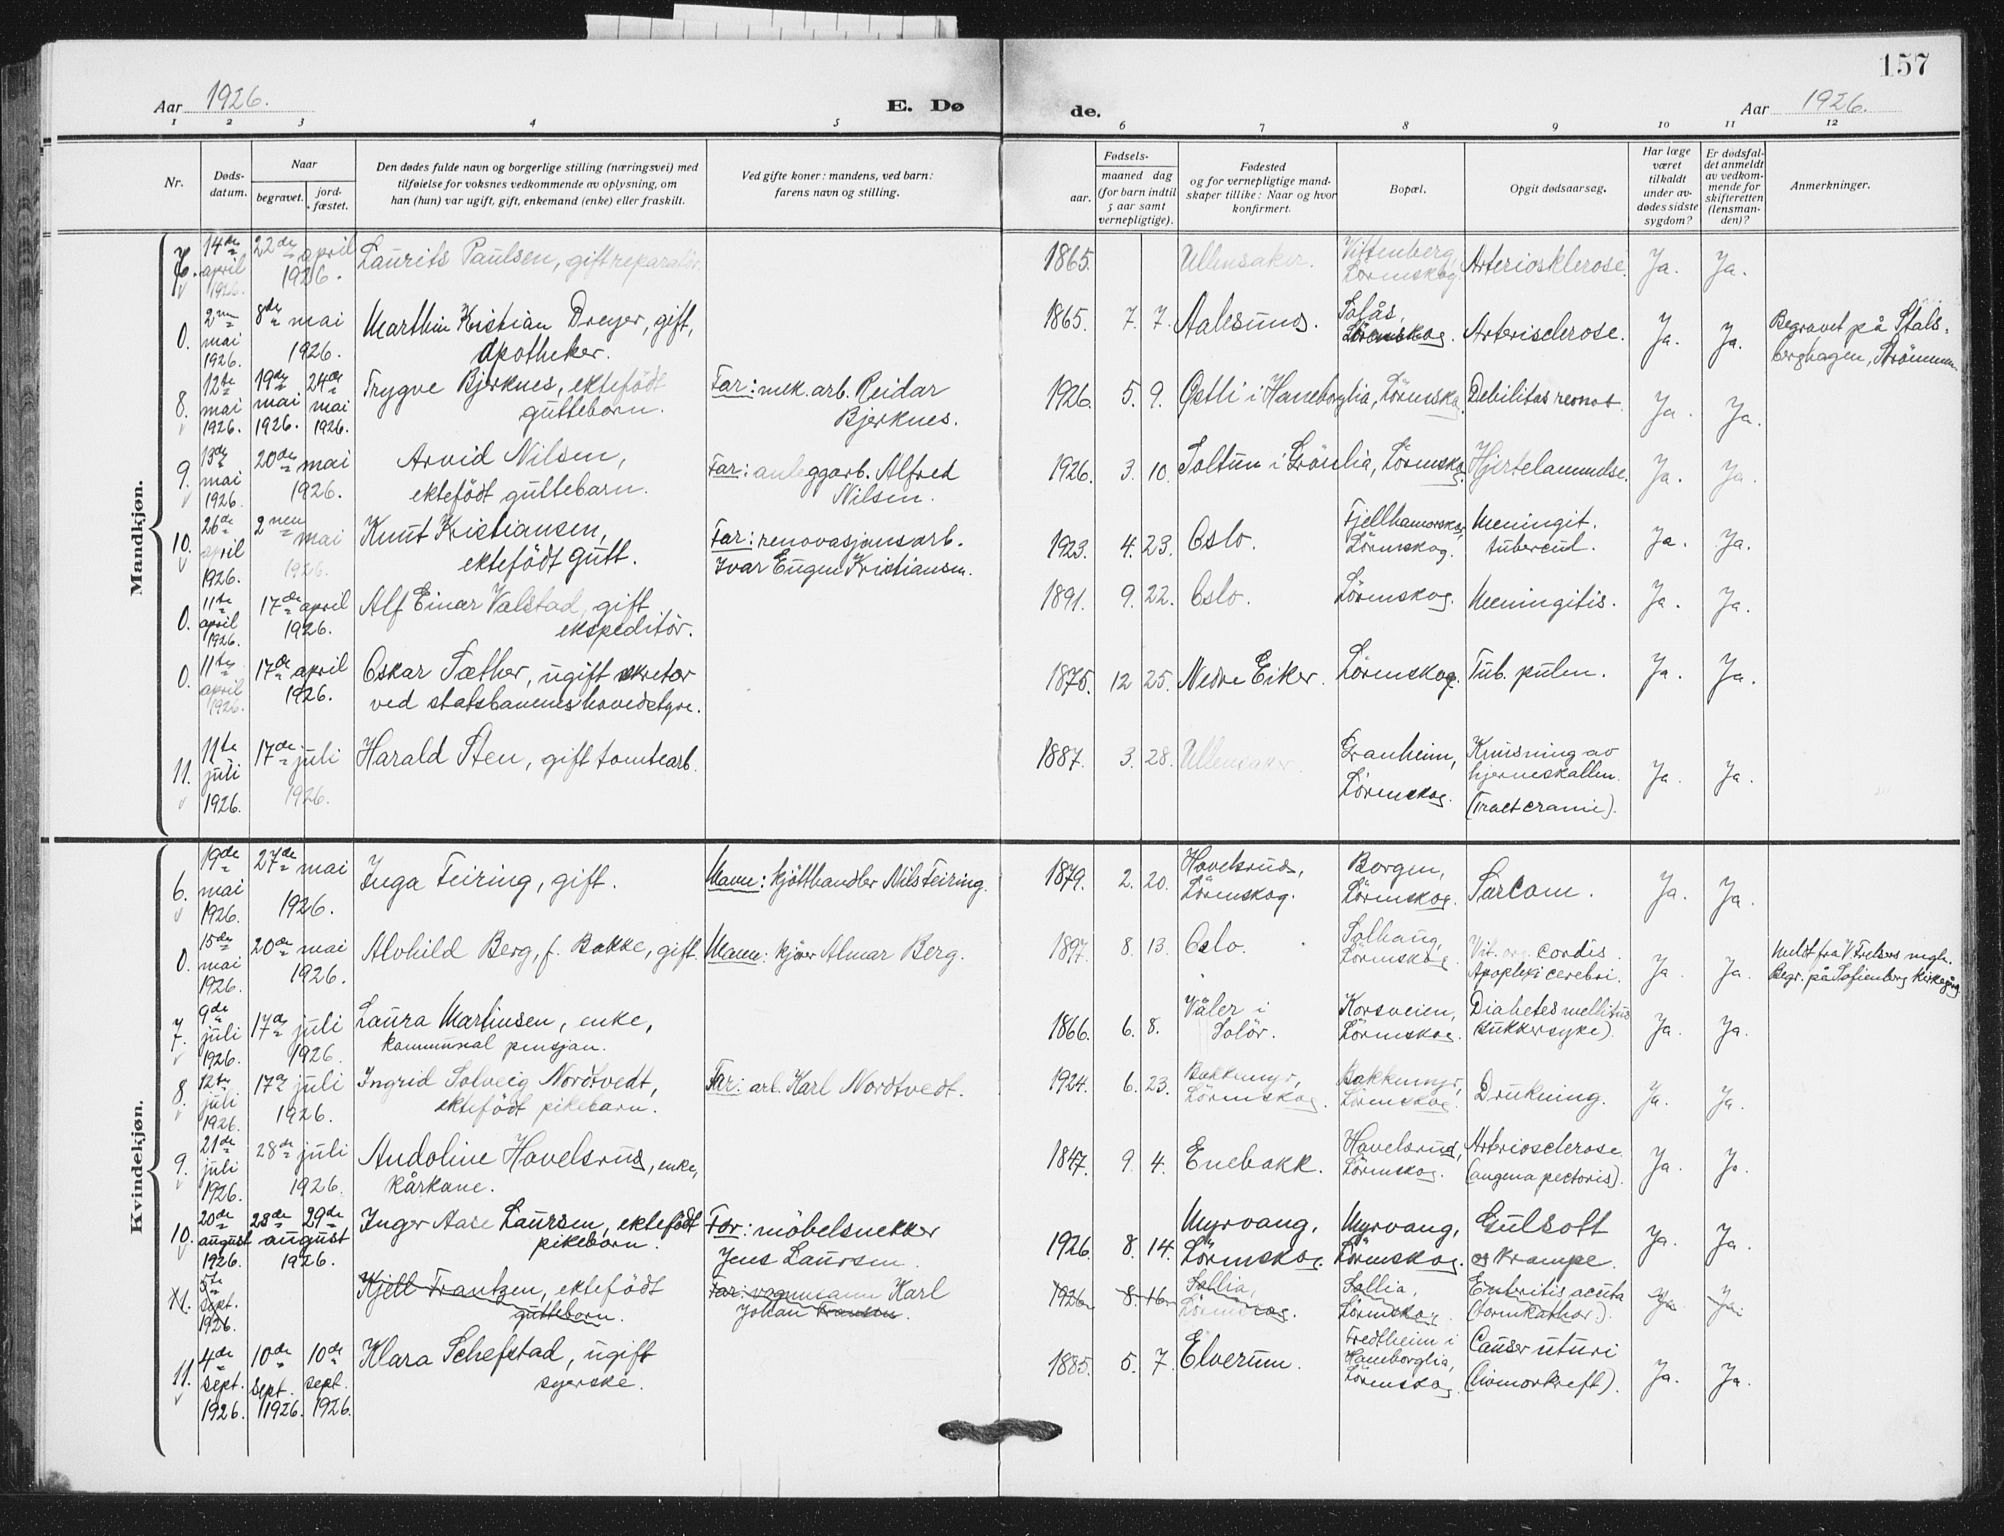 157
Aar 1926. E. Dø de. Aar 1926.
1 2 3 4 5 6 7 8 9 10 11 12
Nr.
Døds-
datum.
Naar
begravet.
jord-
fæstet.
Den dødes fulde navn og borgerlige stilling (næringsvei) med
tilføielse for voksnes vedkommende av oplysning, om
han (hun) var ugift, gift, enkemand (enke) eller fraskilt.
Ved gifte koner: mandens, ved barn:
farens navn og stilling.
Fødsels-
aar.
maaned dag
(for barn indtil
5 aar samt
vernepligtige).
Fødested
og for vernepligtige mand-
skaper tillike: Naar og hvor
konfirmert.
Bopæl.
Opgit dødsaarsag.
Har læge
været
tilkaldt
under av-
dødes sidste
sygdom?
Er dødsfal-
det anmeldt
av vedkom-
mende for
skifteretten
(lensman-
den)?
Anmerkninger.
Mandkjøn.
14de april 1926. 22de april 1926. Laurits Paulsen, gift reparatör. 1865. Ullensaker. Vittenberg, Lörenskog. Arteriosklerose. Ja. Ja.
0. 2nn mai 1926. 8de mai 1926. Marthin Kristian Dreyer, gift,
apotheker. 1865. 7. 7. Aalesund. Solås, Lörenskog. Arterisclerose. Ja. Ja. Begravet på Stals-
berghagen, Strömmen.
8. 12te mai 1926. 19de mai 1926. 24de mai 1926. Trygve Bjerknes, ektefödt
guttebarn. Far: mek. arb. Reidar
Bjerknes. 1926. 5. 9. Østli i Haneborglia, Lörenskog. Debilitas Ja. Ja.
9. 13de mai 1926. 20de mai 1926. Arvid Nilsen,
ektefödt guttebarn. Far: anleggarb. Alfred
Nilsen. 1926. 3. 10. Soltun i Grönlia, Lörenskog. Hjertelammelse. Ja. Ja.
10. 26de april 1926. 2nen mai 1926. Knut Kristiansen,
ektefödt gutt. Far: renovasjonsarb.
Ivar Eugen Kristiansen. 1923. 4. 23. Oslo. Fjellhamarskog, Lörenskog. Meningit.
tubercul. Ja. Ja.
0. 11te april 1926. 17de april 1926. Alf Einar Valstad, gift
ekspeditör. 1891. 9. 22. Oslo. Lörenskog. Meningitis. Ja. Ja.
0. 11te april 1926. 17de april 1926. Oskar Sæther, ugift sekretær
ved statsbanenes hovedstyre. 1875. 12 25. Nedre Eiker. Lörenskog. Tub. pulm. Ja. Ja.
11. 11te juli 1926. 17de juli 1926. Harald Sten, gift tomtearb. 1887. 3. 28. Ullensaker. Granheim,
Lörenskog. Knusning av
hjerneskallen.
(Fract cranie). Ja. Ja.
Kvindekjøn.
6. 19de mai 1926. 27de mai 1926. Inga Feiring, gift. Mann: kjötthandler Nils Feiring. 1879. 2. 20. Havelsrud,
Lörenskog. Borgen,
Lörenskog. Sarcom. Ja. Ja.
0. 15de mai 1926. 20de mai 1926. Alvhild Berg, f. Bakke, gift. Mann: kjörer Almar Berg. 1897. 8. 13. Oslo. Solhaug,
Lörenskog. Vit. org. cordis.
Apoplexi cerebri. Ja. Ja. Meldt fra V. Frelsers mgh.
Begr. på Sofienberg kirkegård
7. 9de juli 1926. 17de juli 1926. Laura Martinsen, enke,
kommunal pensjon. 1866. 6. 8. Våler i
Solör. Korsveien,
Lörenskog. Diabetes mellitus
(sukkersyke). Ja. Ja.
8. 12te juli 1926. 17de juli 1926. Ingrid Solveig Nordtvedt,
ektefödt pikebarn. Far: arb. Karl Nordtvedt. 1924. 6. 23. Bakkemyr,
Lörenskog. Bakkemyr,
Lörenskog. Drukning. Ja. Ja.
9. 21de juli 1926. 28de juli 1926. Andoline Havelsrud, enke,
kårkone. 1847. 9. 4. Enebakk. Havelsrud,
Lörenskog. Arteriosclerose
(angina pectoris). Ja. Ja.
10. 20de august 1926. 28de 29de august 1926. Inger Aase Laursen, ektefödt
pikebarn. Far: möbelsnekker
Jens Laursen. 1926. 8. 14. Myrvang,
Lörenskog. Myrvang,
Lörenskog. Gulsott
og Krampe. Ja. Ja.
11. 5te sept. 1926. Kjell Frantzen, ektefödt
guttebarn. Far: vognmann Karl
Johan Fransen. 1926. 8. 16. Sollia,
Lörenskog. Sollia,
Lörenskog. Enteritis acuta
(tarmkathar). Ja. Ja.
11. 4de sept. 1926. 10de sept. 1926. 10de sept. 1926. Klara Schefstad, ugift
syerske. 1885. 5. 7. Elverum. Fredtheim i
Haneborglia,
Lörenskog. Cancer uturi
(livmorkreft). Ja. Ja.